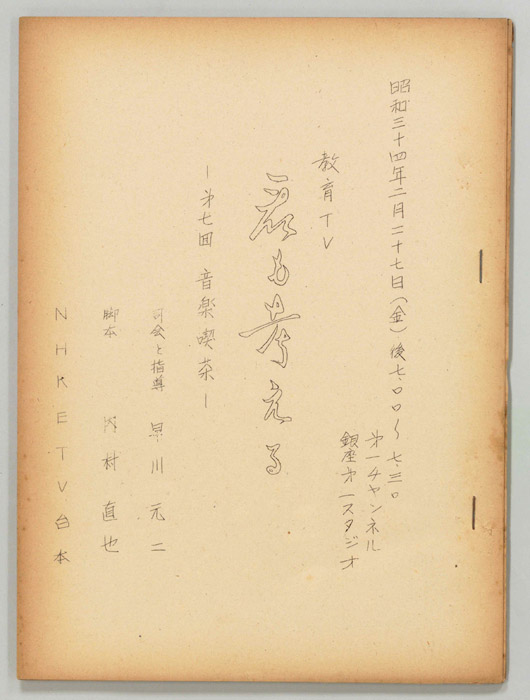 昭和三十四年二月二十七日(金)後七.〇〇〜七.三〇
第一チャンネル
銀座第一スタジオ
教育TV
君も考える
―第七回 音楽喫茶―
司会と指導 早川元二
脚本 内村直也
NHKETV台本